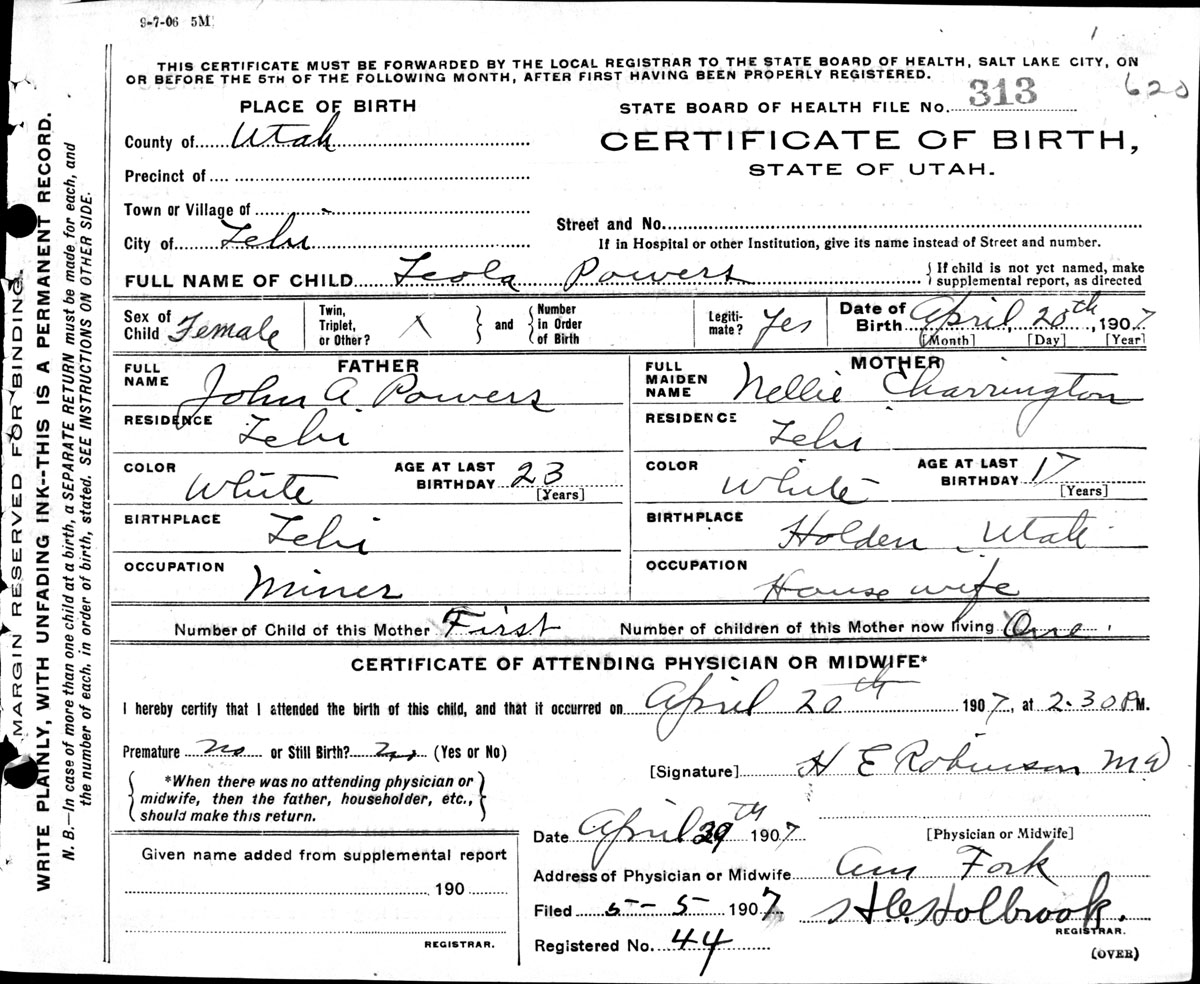 9-7-06 5M
THIS CERTIFICATE MUST BE FORWARDED BY THE LOCAL REGISTRAR TO THE STATE BOARD OF HEALTH, SALT LAKE CITY, ON
OR BEFORE THE 5TH OF THE FOLLOWING MONTH, AFTER FIRST HAVING BEEN PROPERLY REGISTERED.
620
PLACE OF BIRTH
STATE BOARD OF HEALTH FILE No. 313
County of Utah
CERTIFICATE OF BIRTH,
STATE OF UTAH.
Precinct of
Town or Village of
Street and No.
City of Lehi
If in Hospital or other Institution, give its name instead of Street and number.
FULL NAME OF CHILD Leola Powers
{If child is not yet named, make
supplemental report, as directed
Sex of Child Female
Twin, Triplet, or Other? X } and { Number in Order of Birth
Legiti-mate? Yes
Date of Birth April, 20th, 1907
[Month] [Day] [Year]
FATHER
FULL NAME John A. Powers
RESIDENCE Lehi
COLOR White
AGE AT LAST BIRTHDAY 23
[Years]
BIRTHPLACE Lehi
OCCUPATION Miner
MOTHER
FULL MAIDEN NAME Nellie Charrington
RESIDENCE Lehi
COLOR White
AGE AT LAST BIRTHDAY 17
[Years]
BIRTHPLACE Holden Utah
OCCUPATION House wife
Number of Child of this Mother First Number of children of this Mother now living One
CERTIFICATE OF ATTENDING PHYSICIAN OR MIDWIFE*
I hereby certify that I attended the birth of this child, and that it occurred on April 20th 1907, at 2.30 P M.
Premature no or Still Birth? no (Yes or No)
*When there was no attending physician or
midwife, then the father, householder, etc.,
should make this return.
[Signature] H E Robinson MD
[Physician or Midwife]
Date April 29th 1907
Address of Physician or Midwife Am Fork
Filed 5-5 1907 H.C. Holbrook.
REGISTRAR.
Registered No. 44
(OVER)
Given name added from supplemental report
190
REGISTRAR.
MARGIN RESERVED FOR BINDING.
WRITE PLAINLY, WITH UNFADING INK--THIS IS A PERMANENT RECORD.
N. B.—In case of more than one child at a birth, a SEPARATE RETURN must be made for each, and
the number of each, in order of birth, stated. SEE INSTRUCTIONS ON OTHER SIDE.